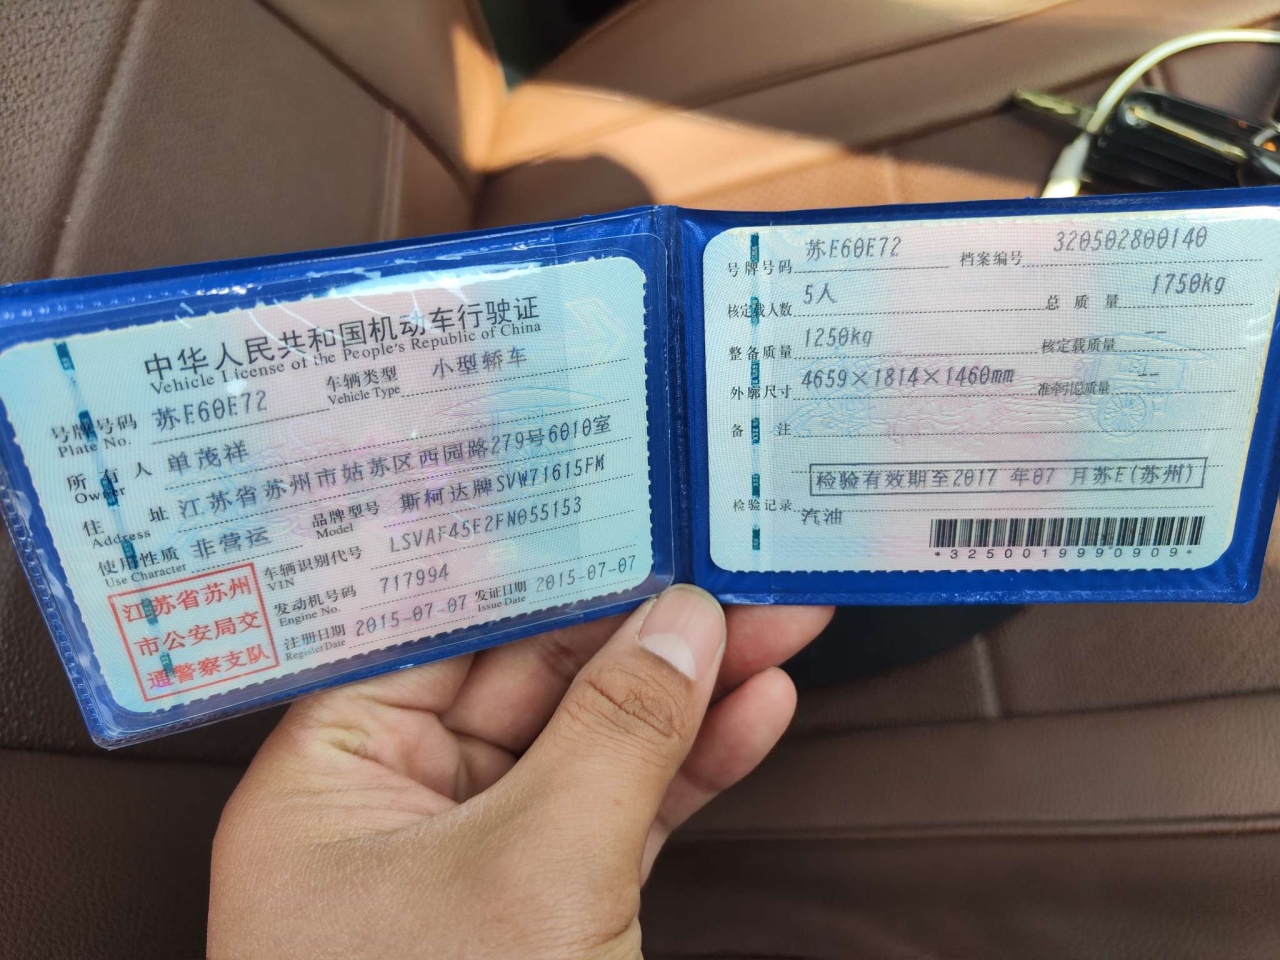 中华人民共和国机动车行驶证
Vehicle License of the People's Republic of China
号牌号码 苏E60E72 车辆类型 小型轿车
Plate No. Vehicle Type
所有人 单茂祥
Owner
住址 江苏省苏州市姑苏区西园路279号6010室
Address
使用性质 非营运 品牌型号 斯柯达牌SVW71615FM
Use Character Model
车辆识别代号 LSVAF45E2FN055153
VIN
发动机号码 717994
Engine No.
注册日期 2015-07-07 发证日期 2015-07-07
Register Date Issue Date
江苏省苏州
市公安局交
通警察支队
号牌号码 苏E60E72 档案编号 320502800140
核定载人数 5人 总质量 1750kg
整备质量 1250kg 核定载质量 --
外廓尺寸 4659×1814×1460mm 准牵引总质量 --
备注
检验有效期至2017 年07 月苏E(苏州)
检验记录
汽油
*3250019990909*